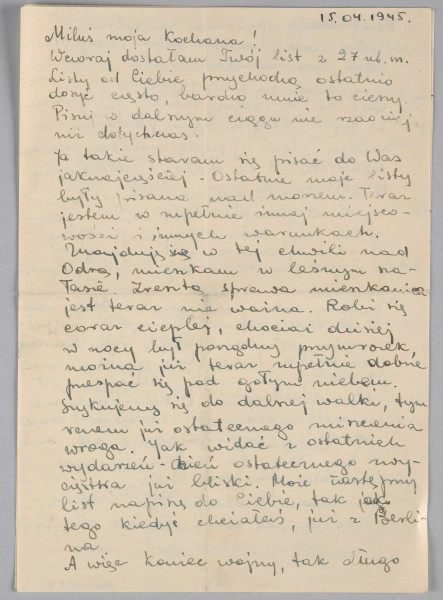 15.04.1945.
Miluś moja Kochana!
Wczoraj dostałam Twój list z 27 ub. m.
Listy od Ciebie przychodzą ostatnio
dosyć często, bardzo mnie to cieszy.
Pisuj w dalszym ciągu nie rzadziej
niż dotychczas.
Ja także staram się pisać do Was
jaknajczęściej. Ostatnie moje listy
były pisane nad morzem. Teraz
jestem w zupełnie innej miejsco-
wości i innych warunkach.
Znajduję się w tej chwili nad
Odrą, mieszkam w leśnym sza-
łasie. Zresztą sprawa mieszkania
jest teraz nie ważna. Robi się
coraz cieplej, chociaż dzisiej
w nocy był porządny przymrozek,
można już teraz zupełnie dobrze
przespać się pod gołym niebem.
Szykujemy się do dalszej walki, tym
razem już ostatecznego zniszczenia
wroga. Jak widać z ostatnich
wydarzeń - dzień ostatecznego zwy-
cięstwa już bliski. Może następny
list napiszę do Ciebie, tak jak
tego kiedyś chciałeś, już z Berli-
na
A więc koniec wojny, tak długo